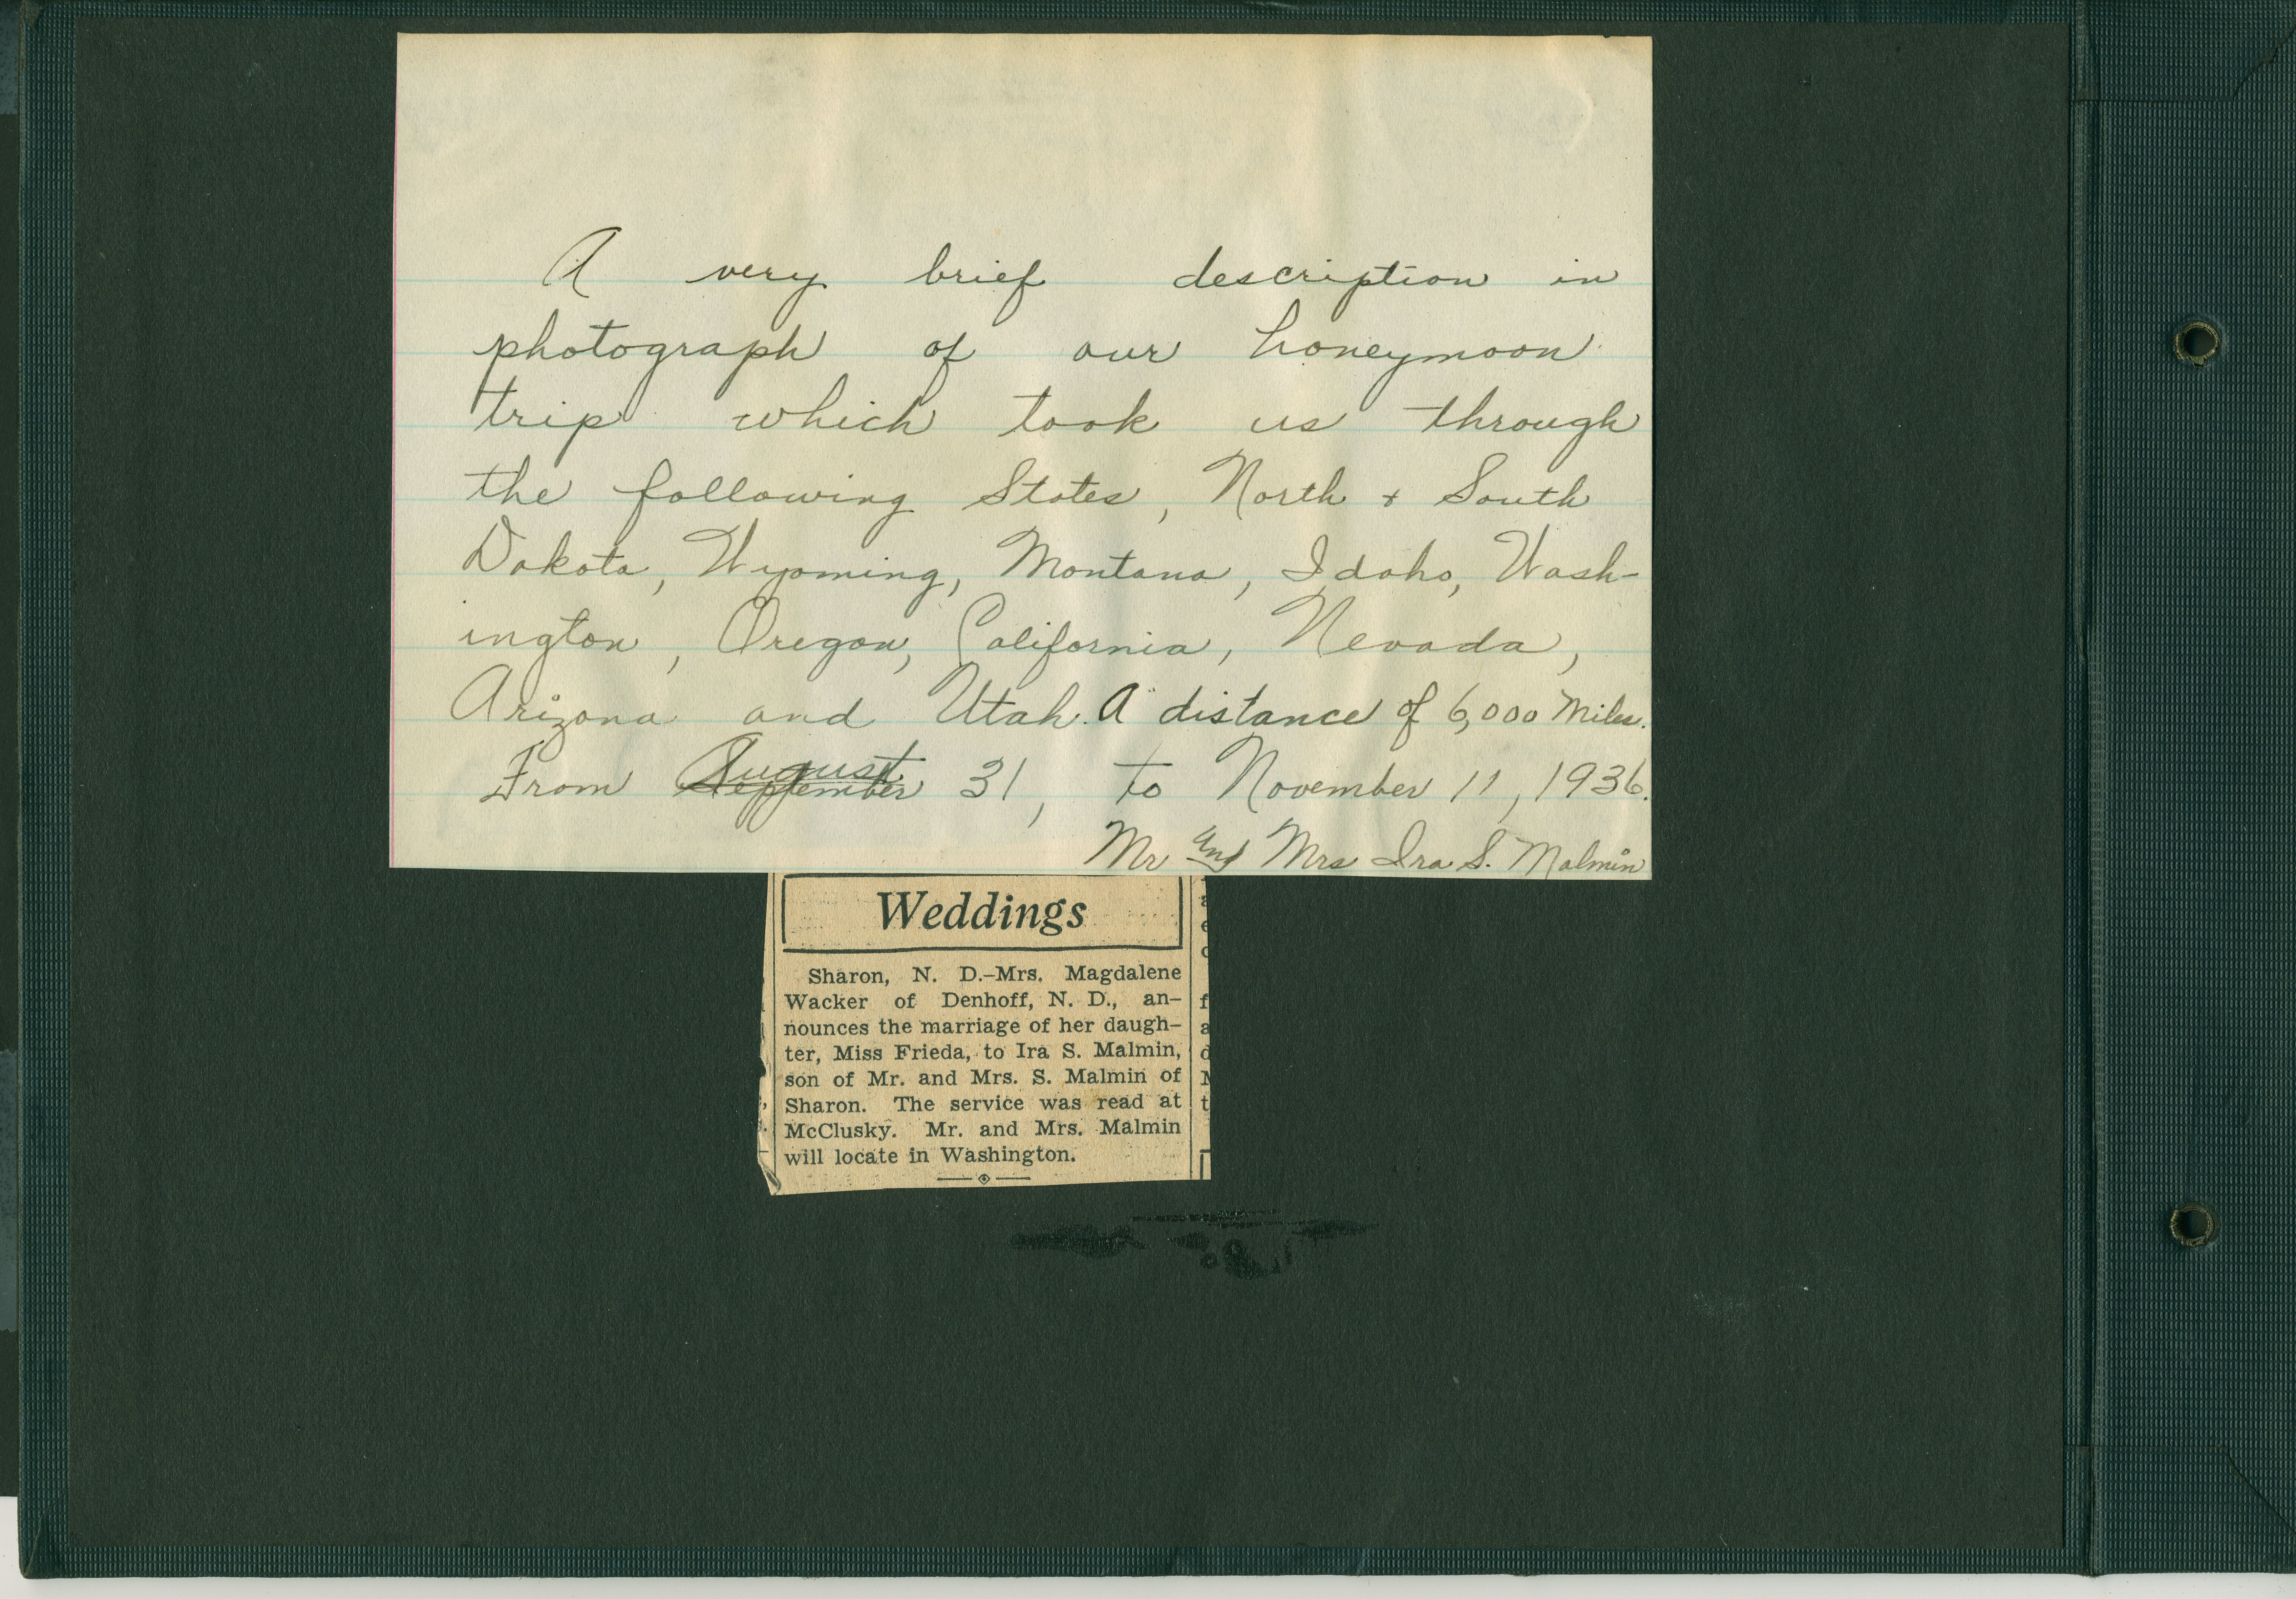 A very brief description in
photograph of our honeymoon
trip which took us through
the following States, North + South
Dakota, Wyoming, Montana, Idaho, Wash-
ington, Oregon, California, Nevada,
Arizona and Utah. A distance of 6,000 Miles.
From September August 31, to November 11, 1936.
Mr and Mrs Ira S. Malmin
Weddings
Sharon, N. D.-Mrs. Magdalene
Wacker of Denhoff, N. D., an-
nounces the marriage of her daugh-
ter, Miss Frieda, to Ira S. Malmin,
son of Mr. and Mrs. S. Malmin of
Sharon. The service was read at
McClusky. Mr. and Mrs. Malmin
will locate in Washington.